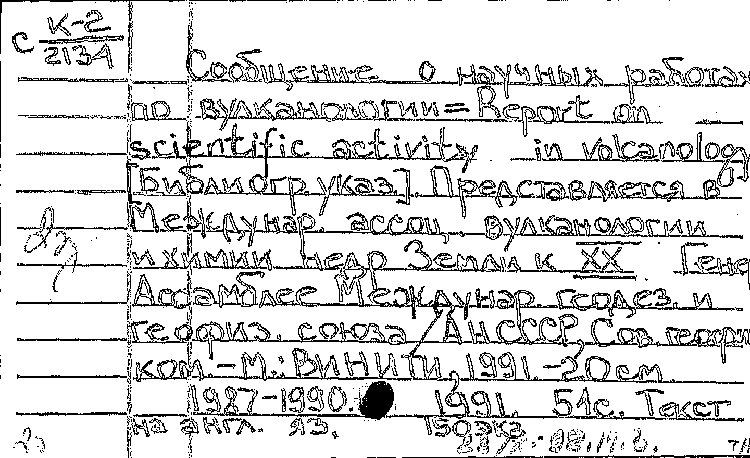 с К-2
2134
Сообщение о научных работах
по вулканологии = Report on
scientific activity in volcanolog
[Библиогр. указ.]. Представляется в
Междунар. ассоц. вулканологии
и химии недр Земли к XX Гене
Ассамблее Междунар. геодез. и
геофиз. союза / АН СССР, Сов. геофиз
ком. - М.: ВИНИТИ, 1991. - 20 см.
1987-1990. 1991. 51 с. Текст
на англ. яз. 150 экз.